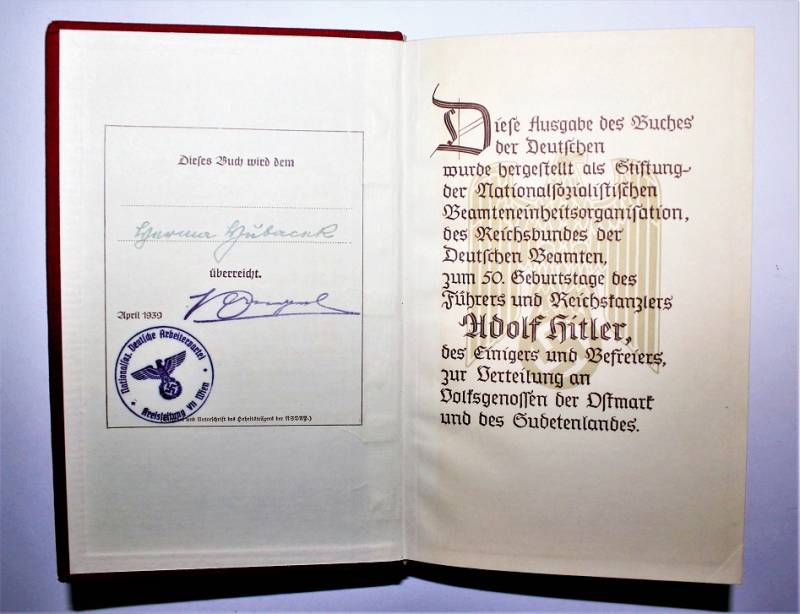 Dieses Buch wird dem
Herma Hubacek
überreicht.
April 1939
Nationalsoz. Deutsche Arbeiterpartei
Kreisleitung VII Wien
und Unterschrift des Hoheitsträgers der NSDAP.)
Diese Ausgabe des Buches
der Deutschen
wurde hergestellt als Stiftung
der Nationalsozialistischen
Beamteneinheitsorganisation,
des Reichsbundes der
Deutschen Beamten,
zum 50. Geburtstage des
Führers und Reichskanzlers
Adolf Hitler,
des Einigers und Befreiers,
zur Verteilung an
Volksgenossen der Ostmark
und des Sudetenlandes.